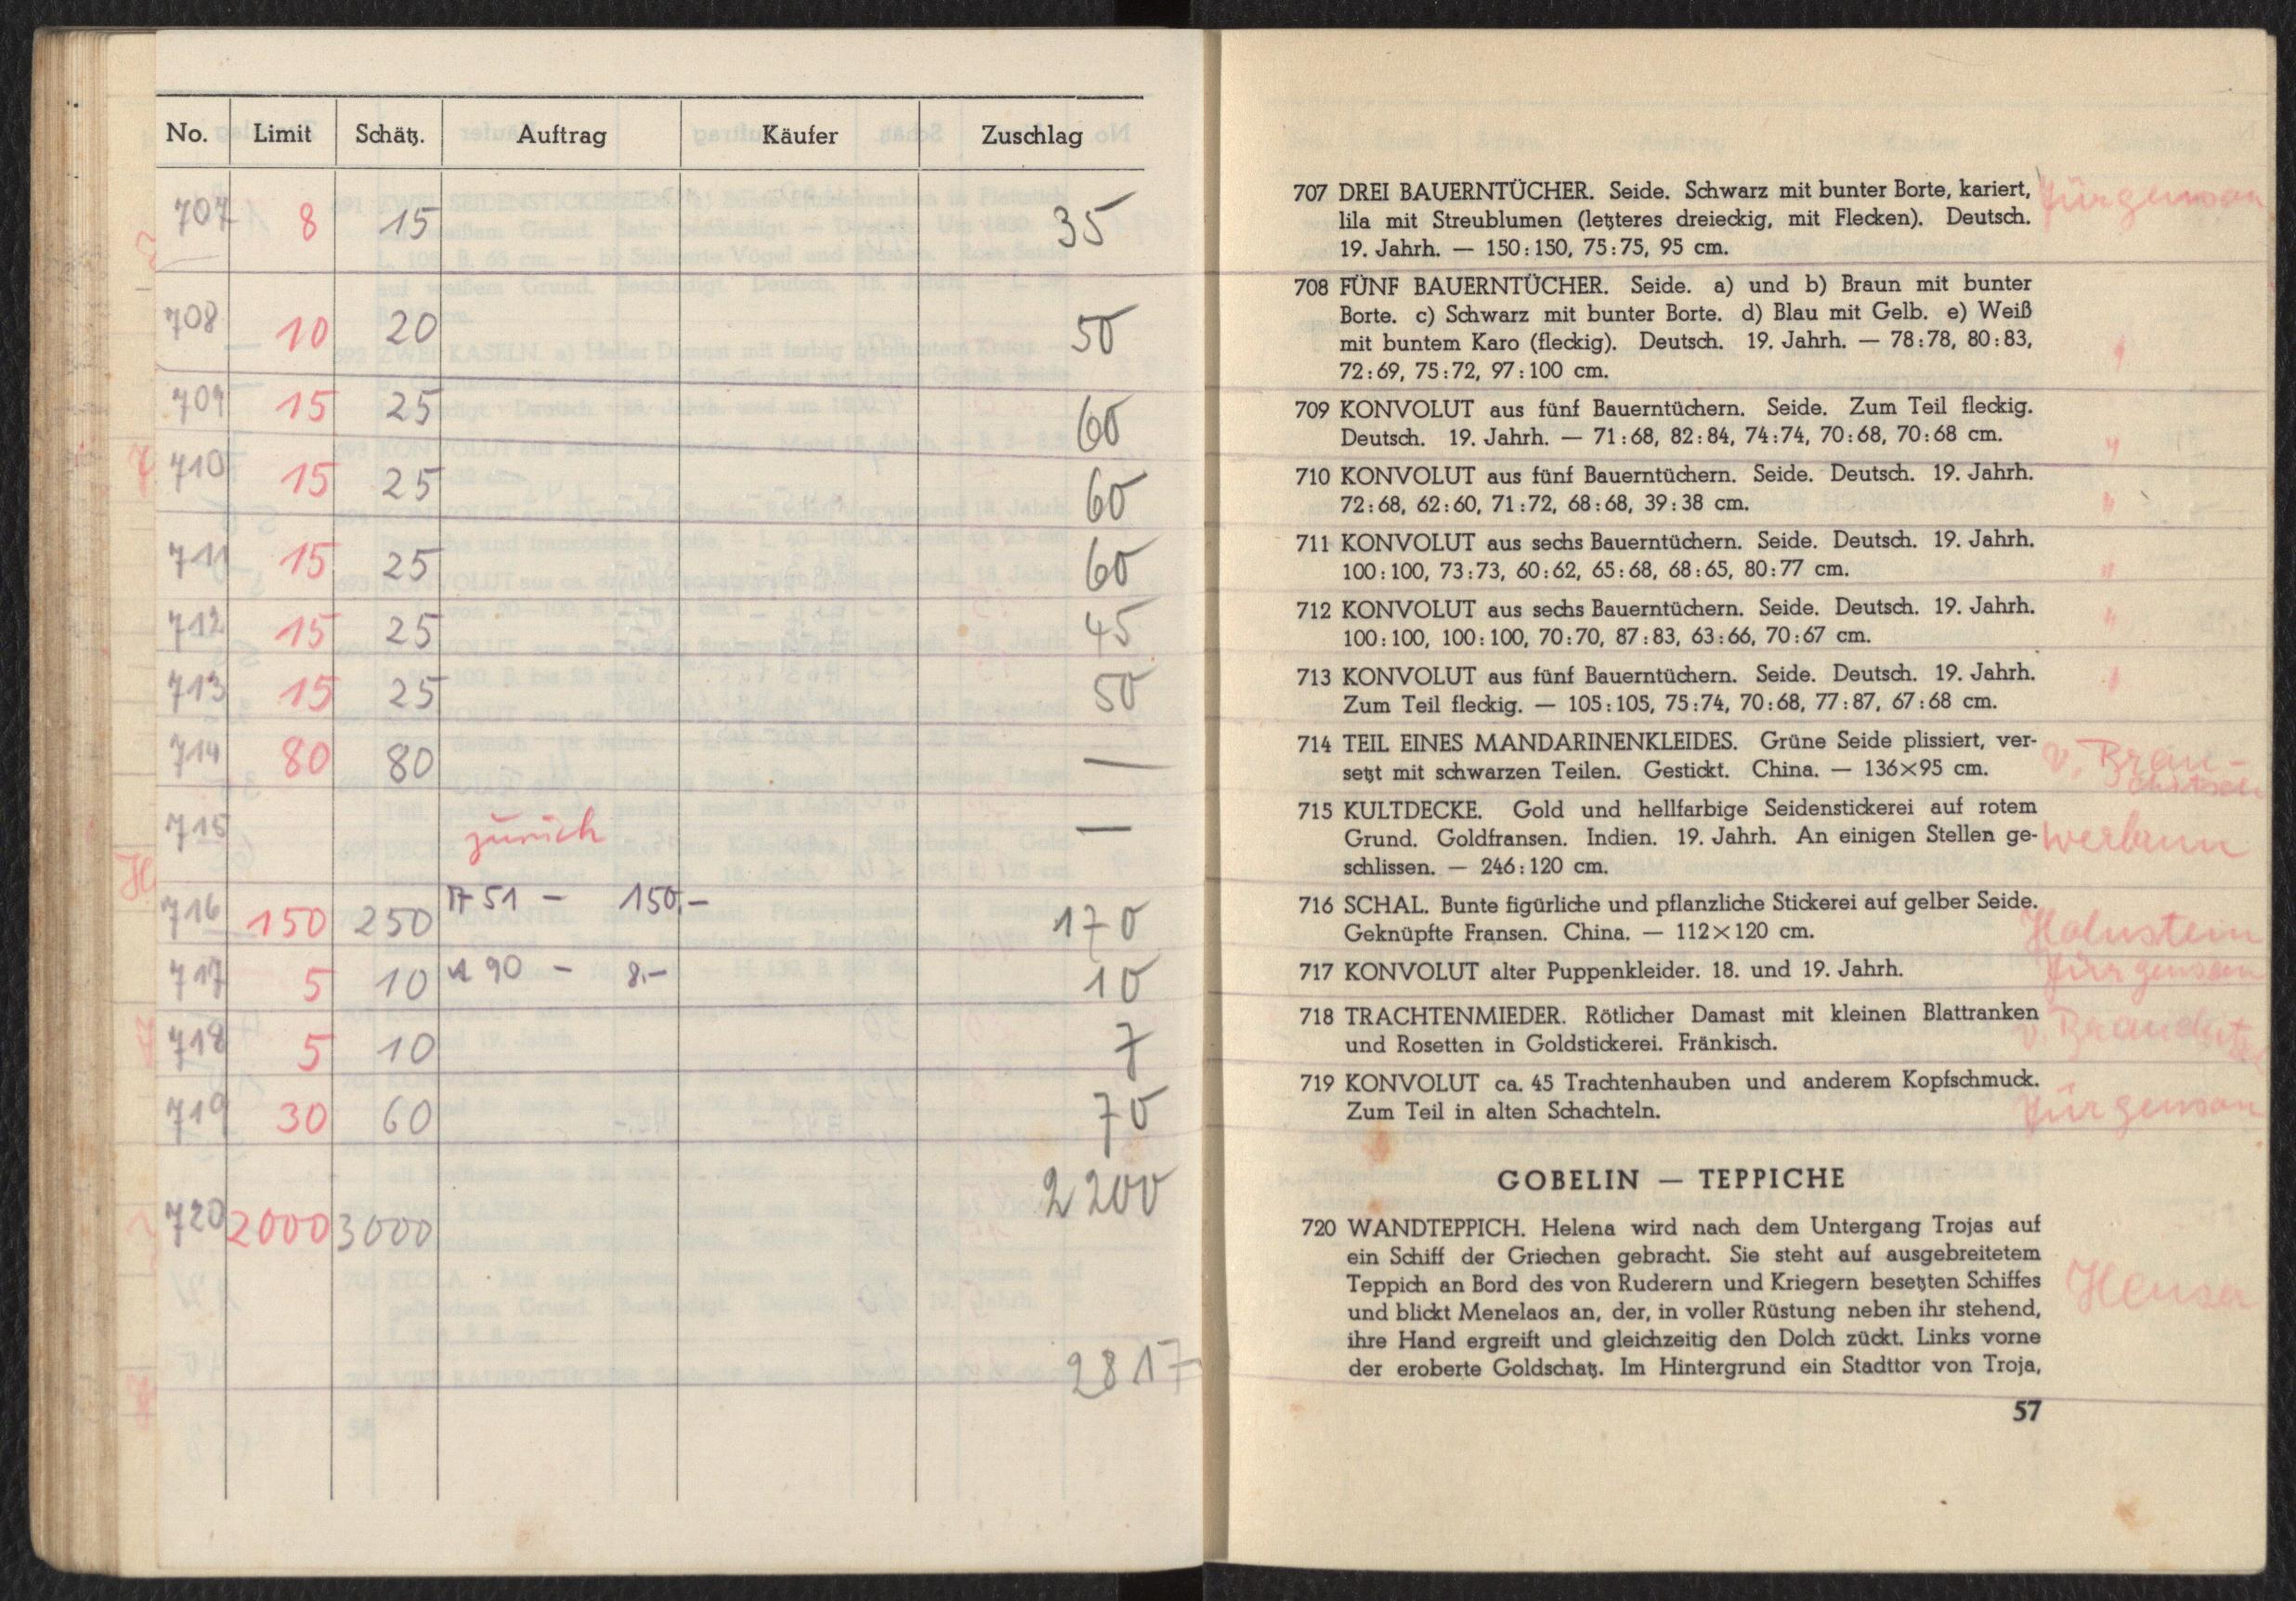 No. Limit Schätz. Auftrag Käufer Zuschlag
707 8 15 35
708 10 20 50
709 15 25 60
710 15 25 60
711 15 25 60
712 15 25 45
713 15 25 50
714 80 80 —
715 zurück —
716 150 250 51 - 150,- 170
717 5 10 90 - 8.- 10
718 5 10 7
719 30 60 70
720 2000 3000 2200
2817
707 DREI BAUERNTÜCHER. Seide. Schwarz mit bunter Borte, kariert, Jürgenson
lila mit Streublumen (letzteres dreieckig, mit Flecken). Deutsch.
19. Jahrh. — 150:150, 75:75, 95 cm.
708 FÜNF BAUERNTÜCHER. Seide. a) und b) Braun mit bunter
Borte. c) Schwarz mit bunter Borte. d) Blau mit Gelb. e) Weiß
mit buntem Karo (fleckig). Deutsch. 19. Jahrh. — 78:78, 80:83, "
72:69, 75:72, 97:100 cm.
709 KONVOLUT aus fünf Bauerntüchern. Seide. Zum Teil fleckig.
Deutsch. 19. Jahrh. — 71:68, 82:84, 74:74, 70:68, 70:68 cm. "
710 KONVOLUT aus fünf Bauerntüchern. Seide. Deutsch. 19. Jahrh.
72:68, 62:60, 71:72, 68:68, 39:38 cm. "
711 KONVOLUT aus sechs Bauerntüchern. Seide. Deutsch. 19. Jahrh.
100:100, 73:73, 60:62, 65:68, 68:65, 80:77 cm. "
712 KONVOLUT aus sechs Bauerntüchern. Seide. Deutsch. 19. Jahrh.
100:100, 100:100, 70:70, 87:83, 63:66, 70:67 cm. "
713 KONVOLUT aus fünf Bauerntüchern. Seide. Deutsch. 19. Jahrh.
Zum Teil fleckig. — 105:105, 75:74, 70:68, 77:87, 67:68 cm. "
714 TEIL EINES MANDARINENKLEIDES. Grüne Seide plissiert, ver- v. Brau-
setzt mit schwarzen Teilen. Gestickt. China. — 136×95 cm. chitsch
715 KULTDECKE. Gold und hellfarbige Seidenstickerei auf rotem
Grund. Goldfransen. Indien. 19. Jahrh. An einigen Stellen ge-
schlissen. — 246:120 cm.
716 SCHAL. Bunte figürliche und pflanzliche Stickerei auf gelber Seide.
Geknüpfte Fransen. China. — 112×120 cm. Holnstein
717 KONVOLUT alter Puppenkleider. 18. und 19. Jahrh. Jürgenson
718 TRACHTENMIEDER. Rötlicher Damast mit kleinen Blattranken
und Rosetten in Goldstickerei. Fränkisch.
719 KONVOLUT ca. 45 Trachtenhauben und anderem Kopfschmuck.
Zum Teil in alten Schachteln. Jürgenson
GOBELIN — TEPPICHE
720 WANDTEPPICH. Helena wird nach dem Untergang Trojas auf
ein Schiff der Griechen gebracht. Sie steht auf ausgebreitetem
Teppich an Bord des von Ruderern und Kriegern besetzten Schiffes
und blickt Menelaos an, der, in voller Rüstung neben ihr stehend,
ihre Hand ergreift und gleichzeitig den Dolch zückt. Links vorne
der eroberte Goldschatz. Im Hintergrund ein Stadttor von Troja,
57